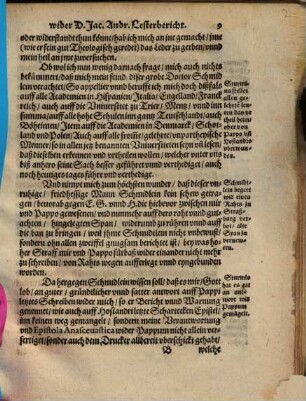 wider D. Jac. Andr. Lesterbericht. 9
oder widerstandt thun könne/ hab ich mich an jne gemacht/ jme
(wie er fein gut Theologisch geredet) das Leder zu gerben/ vnd
mein heil an jme zuuersuchen.
Ob wol ich nun wenig darnach frage/ mich auch nichts
bekümmert/ daß mich mein feind diser grobe Doctor Schmid
lein verachtet/ So appellier vnd berüffe mich doch dißfals
auff alle Academien in Hispanien/ Italia/ Engelland/ Franck
reich/ auch auff die Vniuersitet zu Trier/ Mentz/ vnnd inn
summa/ auff alle hohe Schulen im gantz Teutschland/ auch
Böheimen/ Item auff die Academien in Dennmarck/ Schott
land vnd Polen/ Auch auff alle fromme/ gelehrte/ vnpartheysche
Männer/ so in allen jetz benannten Vniuersiteten seyn vñ lesen/
daß dieselben erkennen vnd vertheilen wöllen/ welcher vnter vns
biß anhero seine Sach besser geführet vnnd vertheidiget/ auch
noch heutiges tages führe vnd vertheidige.
Vnd nimpt mich zum höchsten wunder/ daß dieser vn-
rühige/ friedhässige Mann Schmidlein sein sehern getra-
gen/ beuorab gegen E. G. vnnd H. die hiebevor zwischen mir
vnd Pappo gewesenen/ vnd nunmehr auff dero raht vnd gut-
achten/ hingelegten Span/ widerumb zu rühren vnnd auff
die ban zu bringen/ weil ihme Schmidlein nicht vnbewust/
sondern ohn allen zweiffel gnugsam berichtet ist/ bey was ho-
her Straff mir vnd Pappo fürbaß wider einander nicht mehr
zu schreiben/ von Rahts wegen aufferlegt vnnd eyngebunden
worden.
Da hergegen Schmidlein wissen soll/ daß es mir/ Gott
lob/ an guter/ gründtlicher vnnd satter antwort auff Pappi
letztes Schreiben wider mich/ so er Bericht vnnd Warnung
genennet/ wie auch auff Hosiandri letzte Schartecken Epistel/
gar keinen weg gemangelt/ sondern meine Verantwortung
vnd Epistola Anasceuastica wider Pappum nicht allein ver-
fertiget/ sonder auch dem Drucker allbereit vberschickt gehabt/
B welche